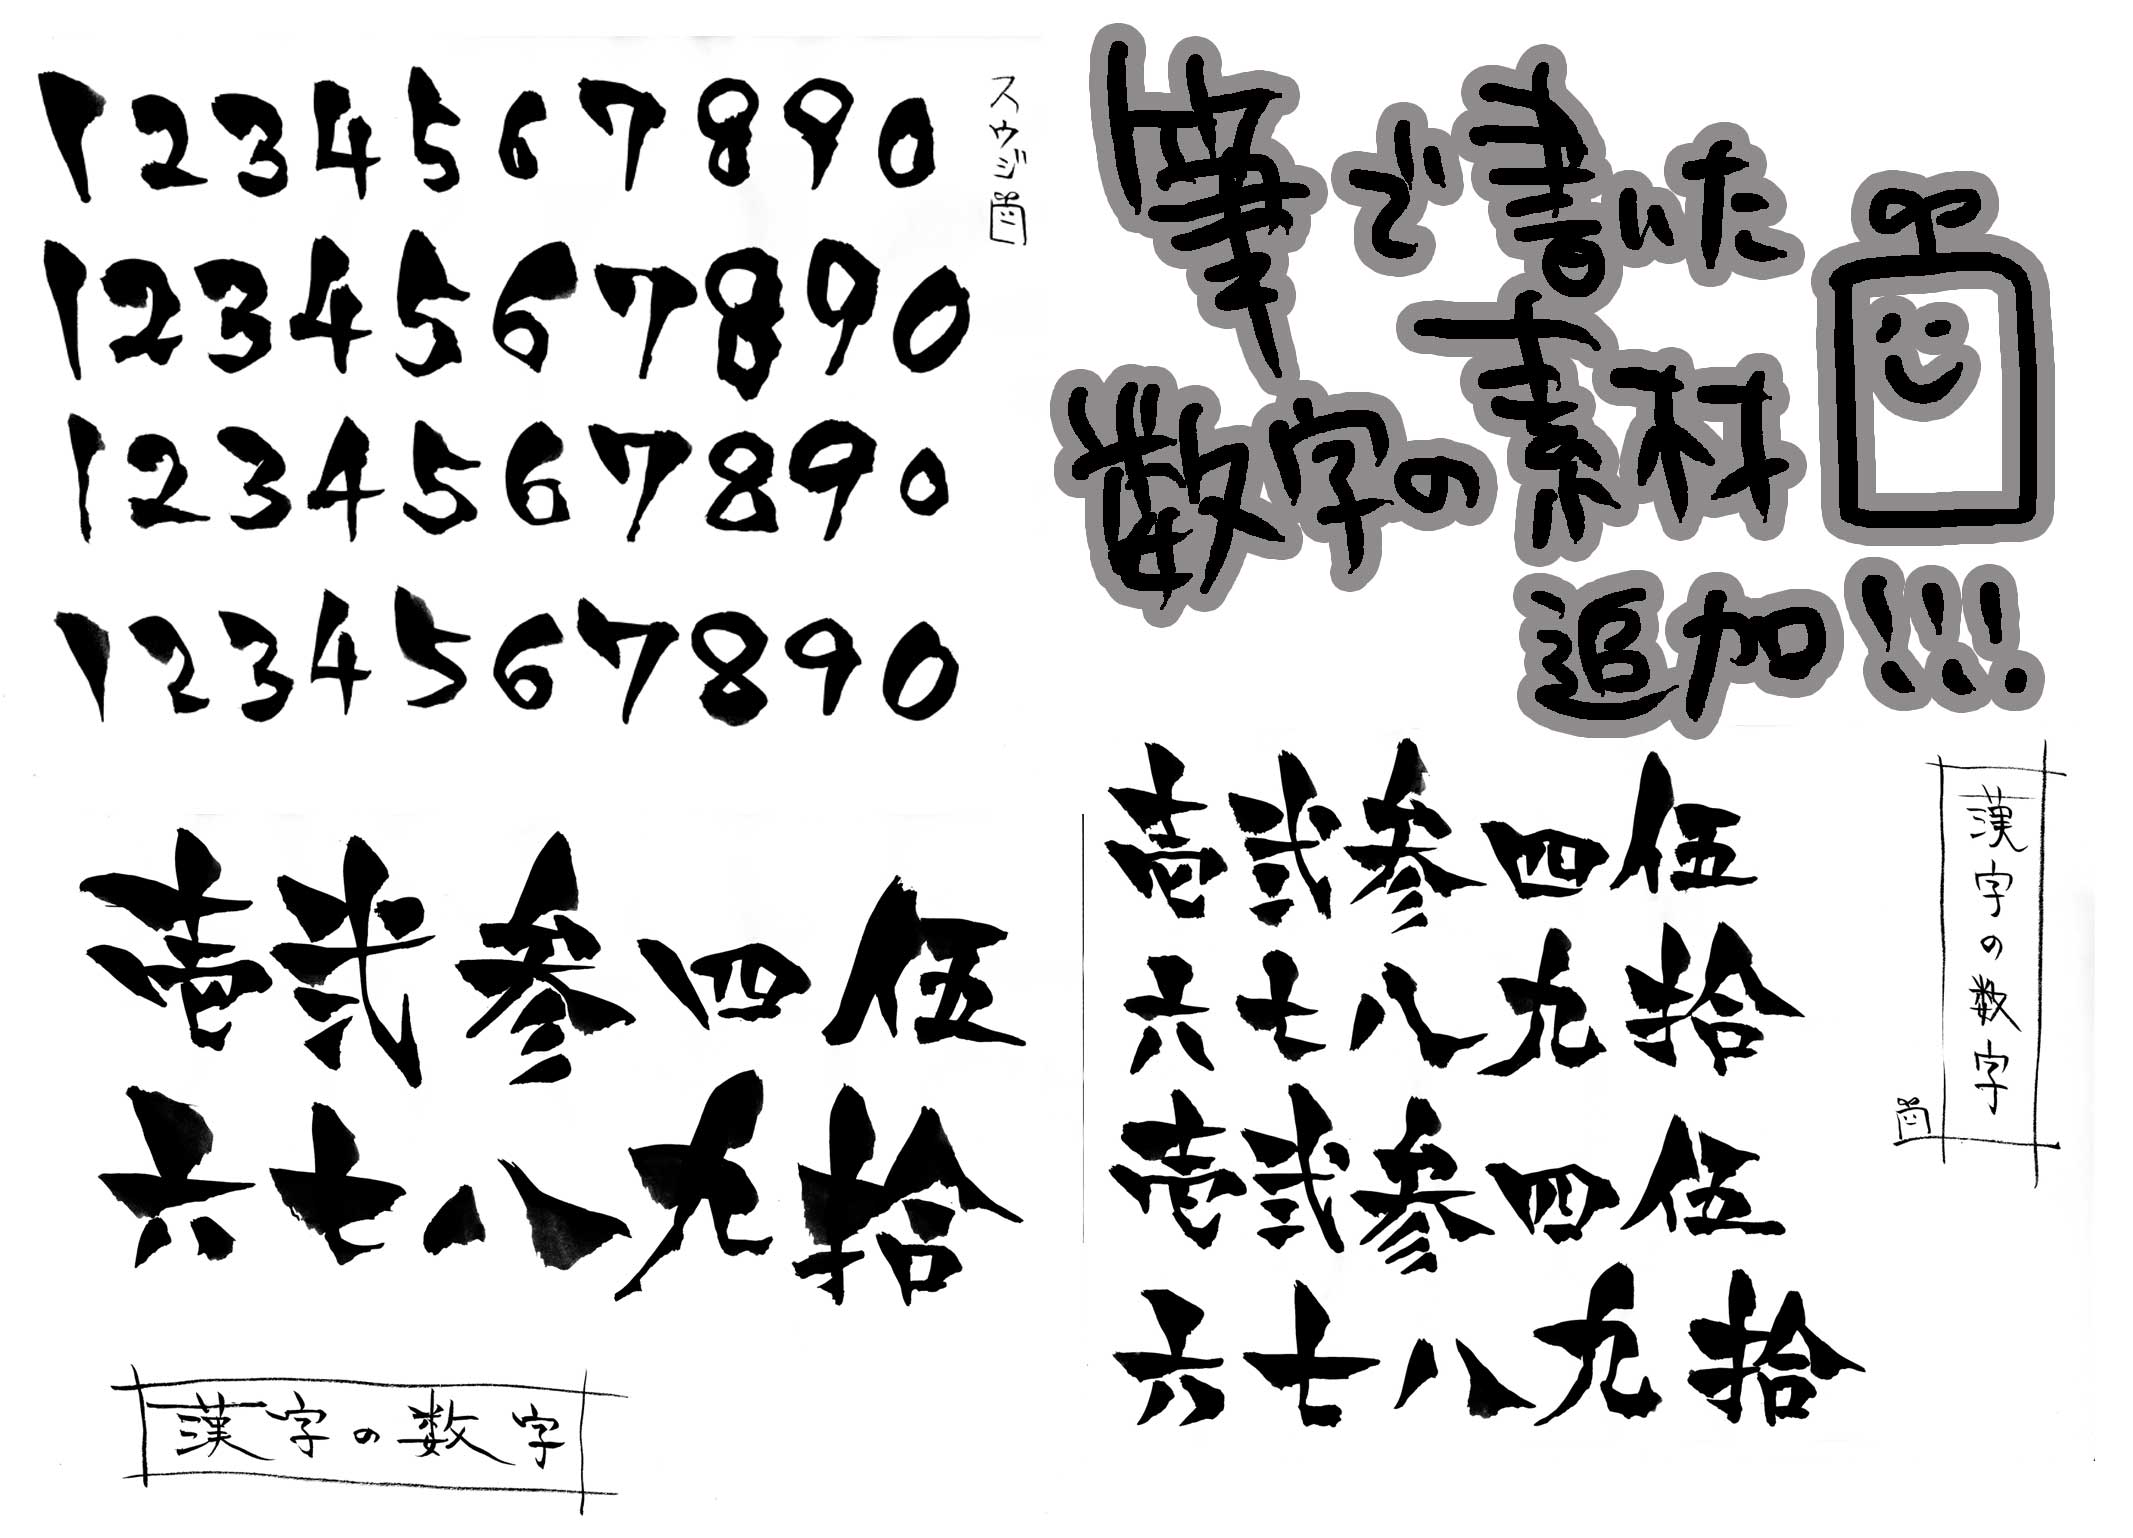 1234567890
1234567890
1234567890
1234567890
スウジ
筆で書いた
数字の素材
追加!!!
壱弐参四伍
六七八九拾
漢字の数字
壱弐参四伍
六七八九拾
壱弐参四伍
六七八九拾
漢字の数字